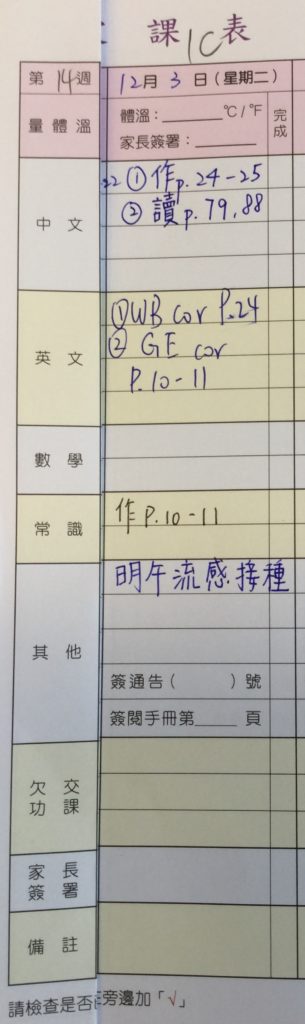 課1C表
第14週 12月3日(星期二)
量體溫 體溫:______°C/°F 完成
家長簽署:______
中文 22 ①作p.24-25
②讀p.79,88
英文 ①WB cor P.24
② GE cor
P.10-11
數學
常識 作P.10-11
其他 明午流感接種
簽通告( )號
簽閱手冊第____頁
欠交功課
家長簽署
備註
請檢查是否 旁邊加「√」